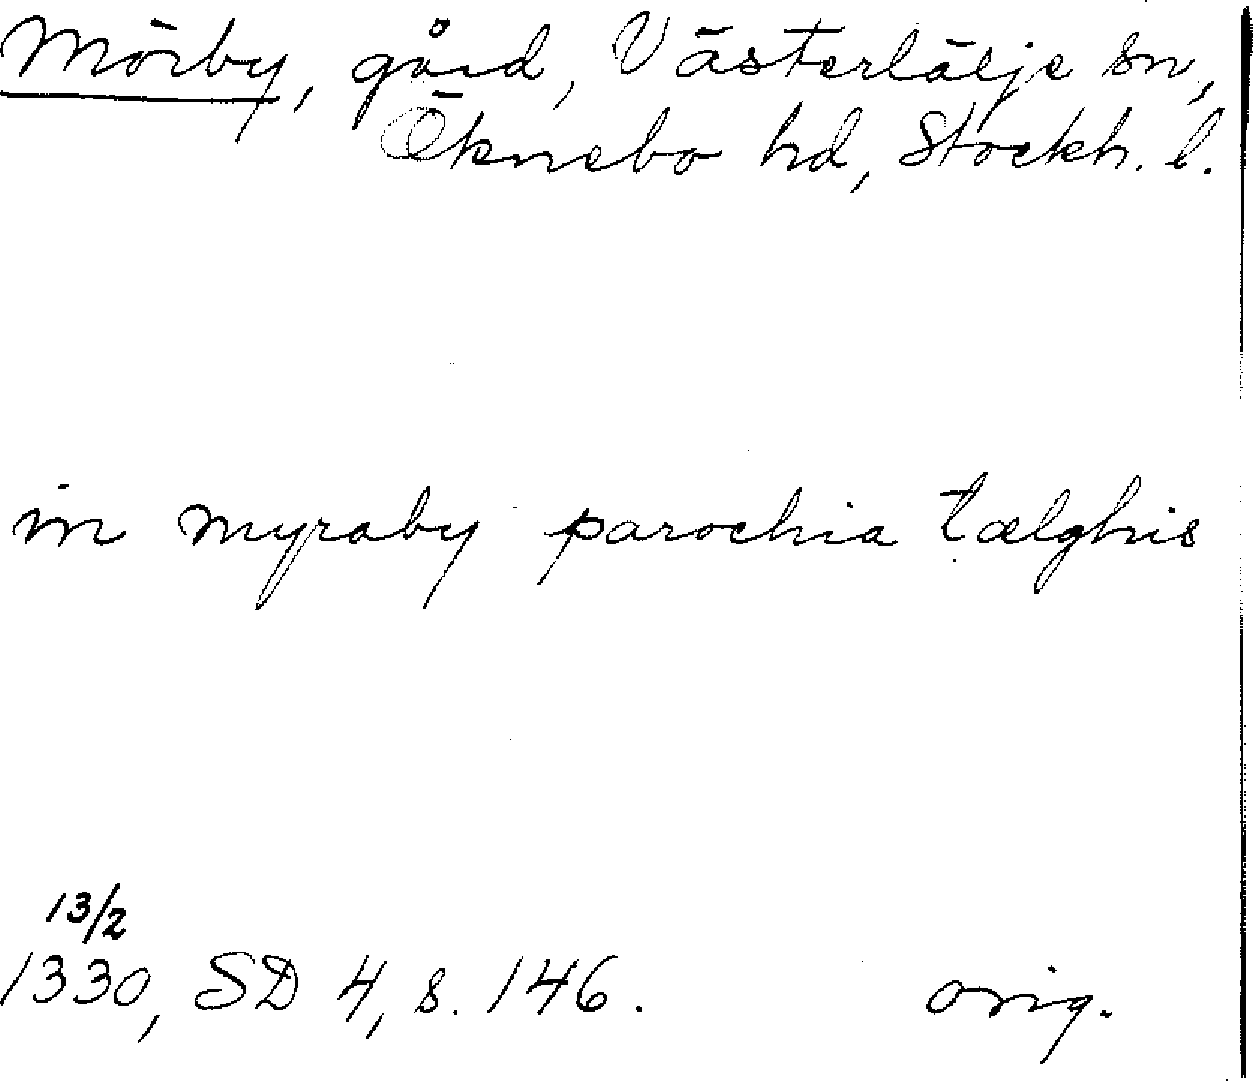 Mörby, gård, Västertälje sn,
Öknebo hd, Stockh. l.
in myraby parochia tælghis
13/2
1330, SD 4, s. 146. orig.